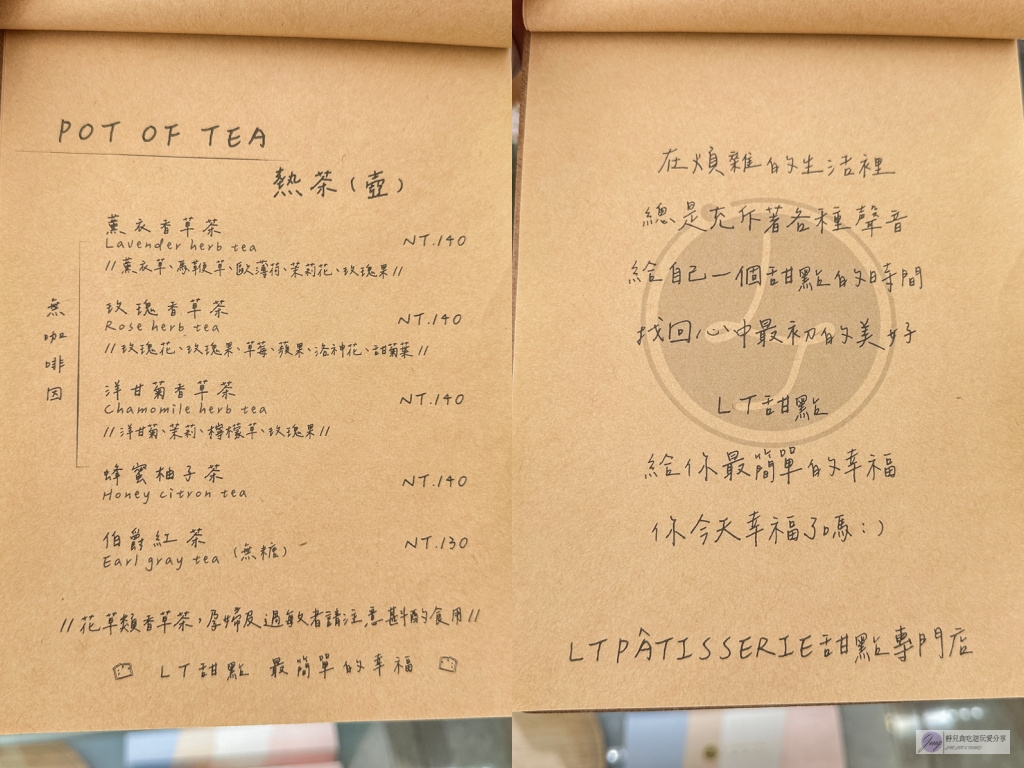 POT OF TEA
熱茶(壺)
薰衣香草茶
Lavender herb tea NT.140
//薰衣草、馬鞭草、歐薄荷、茉莉花、玫瑰果//
玫瑰香草茶
Rose herb tea NT.140
//玫瑰花、玫瑰果、草莓、蘋果、洛神花、甜菊葉//
無咖啡因
洋甘菊香草茶
Chamomile herb tea NT.140
//洋甘菊、茉莉、檸檬草、玫瑰果//
蜂蜜柚子茶
Honey citron tea NT.140
伯爵紅茶
Earl gray tea (無糖) NT.130
//花草類香草茶,孕婦及過敏者請注意斟酌食用//
LT甜點 最簡單的幸福
在煩雜的生活裡
總是充斥著各種聲音
給自己一個甜點的時間
找回心中最初的美好
LT甜點
給你最簡單的幸福
你今天幸福了嗎:)
LT PÂTISSERIE甜點專門店
靜兒貪吃遊玩愛分享